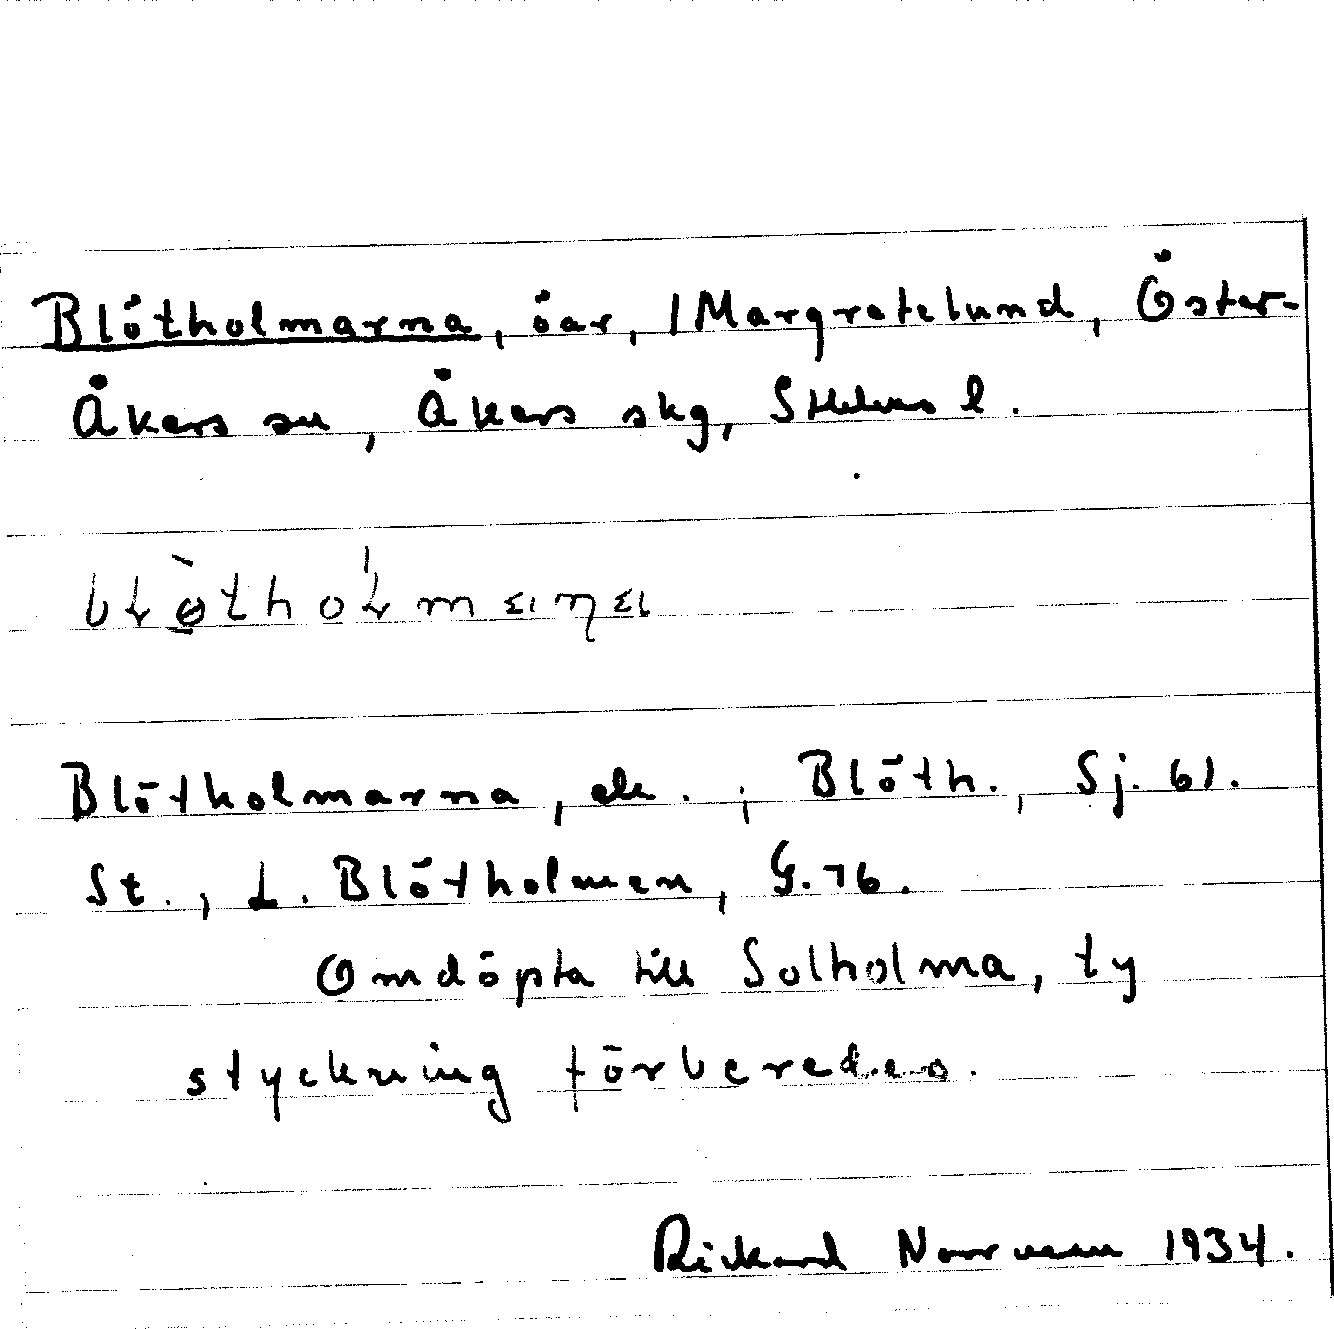 Blötholmarna, öar, /Margretelund, Öster-
Åkers sn, Åkers skg, Sthlms l.
Blötholmarna, ek. ; Blöth., Sj. 61.
St., L. Blötholmen, G. 76.
Omdöpta till Solholma, ty
styckning förberedes.
Rickard Norrman 1934.